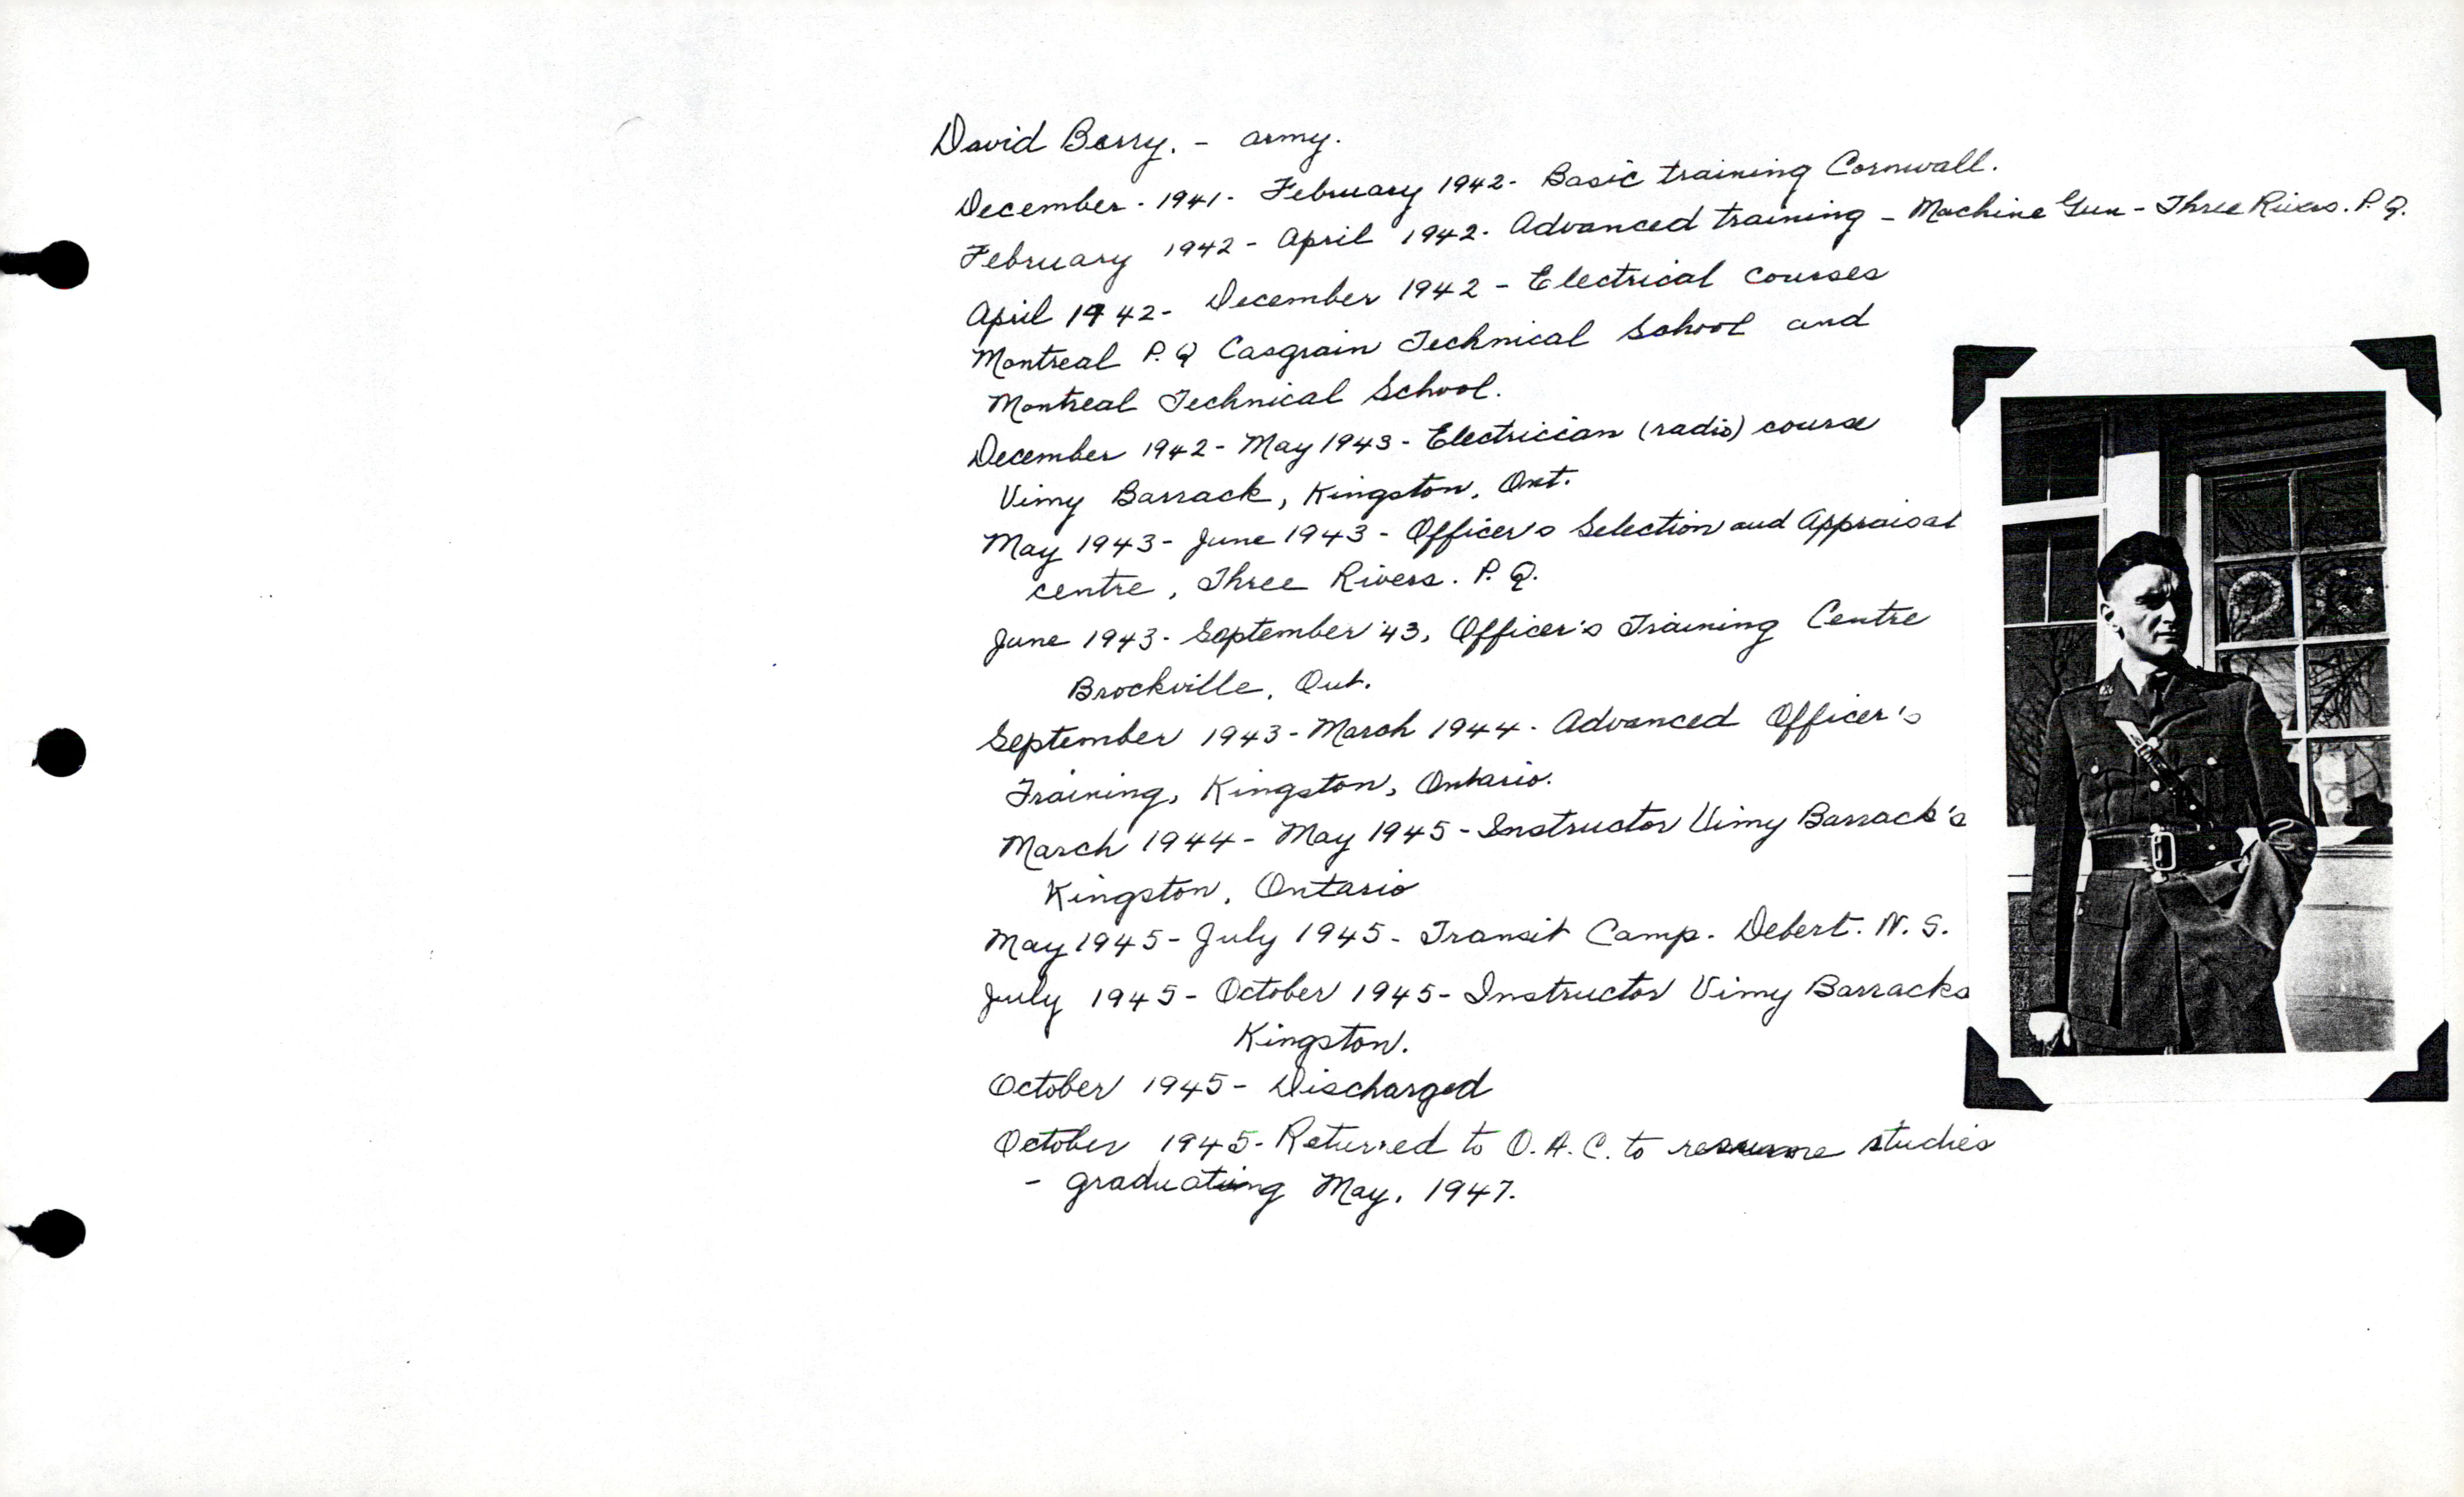 David Berry. - army.
December - 1941 - February 1942 - Basic training Cornwall.
February 1942 - April 1942 - Advanced training - Machine Gun - Three Rivers. P.Q.
April 1942 - December 1942 - Electrical courses
Montreal P.Q Casgrain Technical School and
Montreal Technical School.
December 1942 - May 1943 - Electrician (radio) course
Vimy Barrack, Kingston, Ont.
May 1943 - June 1943 - Officer's Selection and Appraisal
centre, Three Rivers. P.Q.
June 1943 - September '43, Officer's Training Centre
Brockville, Ont.
September 1943 - March 1944 - Advanced Officer's
Training, Kingston, Ontario.
March 1944 - May 1945 - Instructor Vimy Barrack's
Kingston, Ontario
May 1945 - July 1945 - Transit Camp. Debert. N.S.
July 1945 - October 1945 - Instructor Vimy Barracks
Kingston.
October 1945 - Discharged
October 1945 - Returned to O.A.C. to resume studies
- graduating May, 1947.